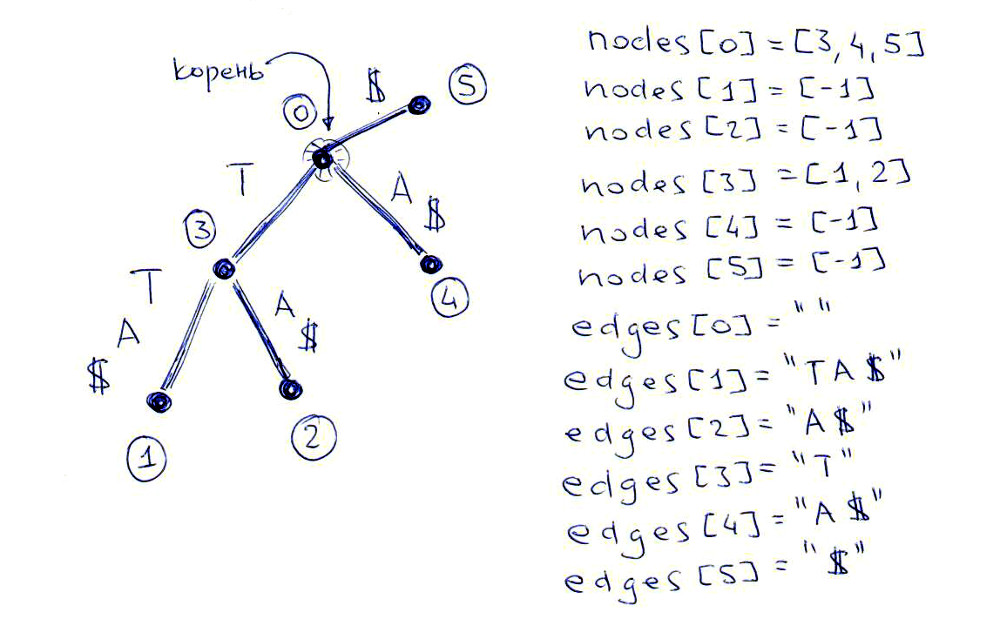 корень
0
$
5
T
A
$
3
4
T
A
$
A
$
1
2
nodes[0] = [3, 4, 5]
nodes[1] = [-1]
nodes[2] = [-1]
nodes[3] = [1, 2]
nodes[4] = [-1]
nodes[5] = [-1]
edges[0] = " "
edges[1] = "TA$"
edges[2] = "A$"
edges[3] = "T"
edges[4] = "A$"
edges[5] = "$"